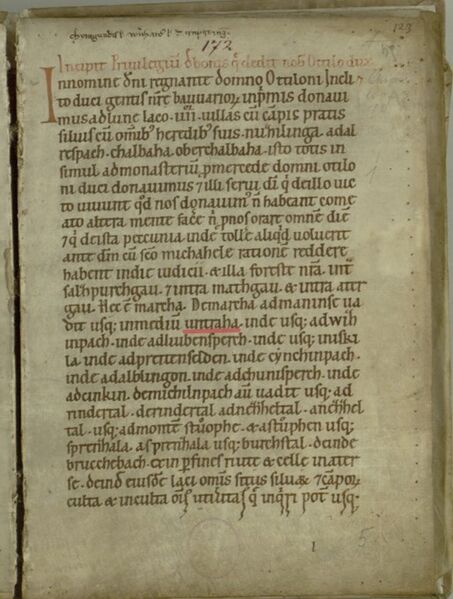 172
123
Incipit Privilegiu de bonis q̄ dedit nob Otilo dux
In nomine dn̄i regnante domno Otiloni Incli
to duci gentis nr̄e bauuarioꝝ inp̄mis donaui
mus aduinc laco · uillas cū cāpis pratis
siluis cū om̄ibꝰ heredibꝰ suis · nuhilinga · adal
respach · chalbaha · oberchalbaha · isto totis in
simul ad monasteriū p mercede domni otilo
ni duci donauimus ⁊ illi serui dī q̄ de illo uic
to uiuunt qd nos donauimꝰ n̄ habeant com̄e
ato altera mente facē n̄ p nos orare omne die
⁊ q̄ de ista pecunia inde tolle aliqd uoluerit
ante dn̄m cū sc̄o michahele ratione reddere
habent in die iudicii · & illa foreste nr̄a · int
salzpurchgau · ⁊ intra mathgau · & intra atter
gau · Hec ē marcha · De marcha ad maninse ua
dit usq; in mediū untraha · inde usq; ad wih
inpach · inde ad liubensperch · inde usq; in iski
la · inde ad prettenfelden · inde cȳnchinpach ·
inde ad alblingon · inde ad chunisperch · inde
ad cinkin · de michilnpach aū uadit usq; ad
rindertal · de rindertal ad nezzheltal · a nezzhel
tal · usq; ad monte stuophe · & a stuphen usq;
sprenzhala · a sprenzhala usq; burchstal · deinde
bruccehebach · & in p fines riuit & celle in ater
se · deinde eiusdē laci om̄is situs siluæ ⁊ cāpoꝝ
culta & inculta om̄s utilitas q̄ inq̄ri pot usq;
1
5